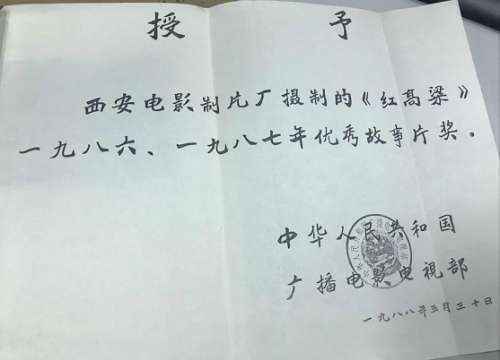 授予
西安电影制片厂摄制的《红高粱》
一九八六、一九八七年优秀故事片奖。
中华人民共和国
广播电影电视部
一九八八年三月三十日